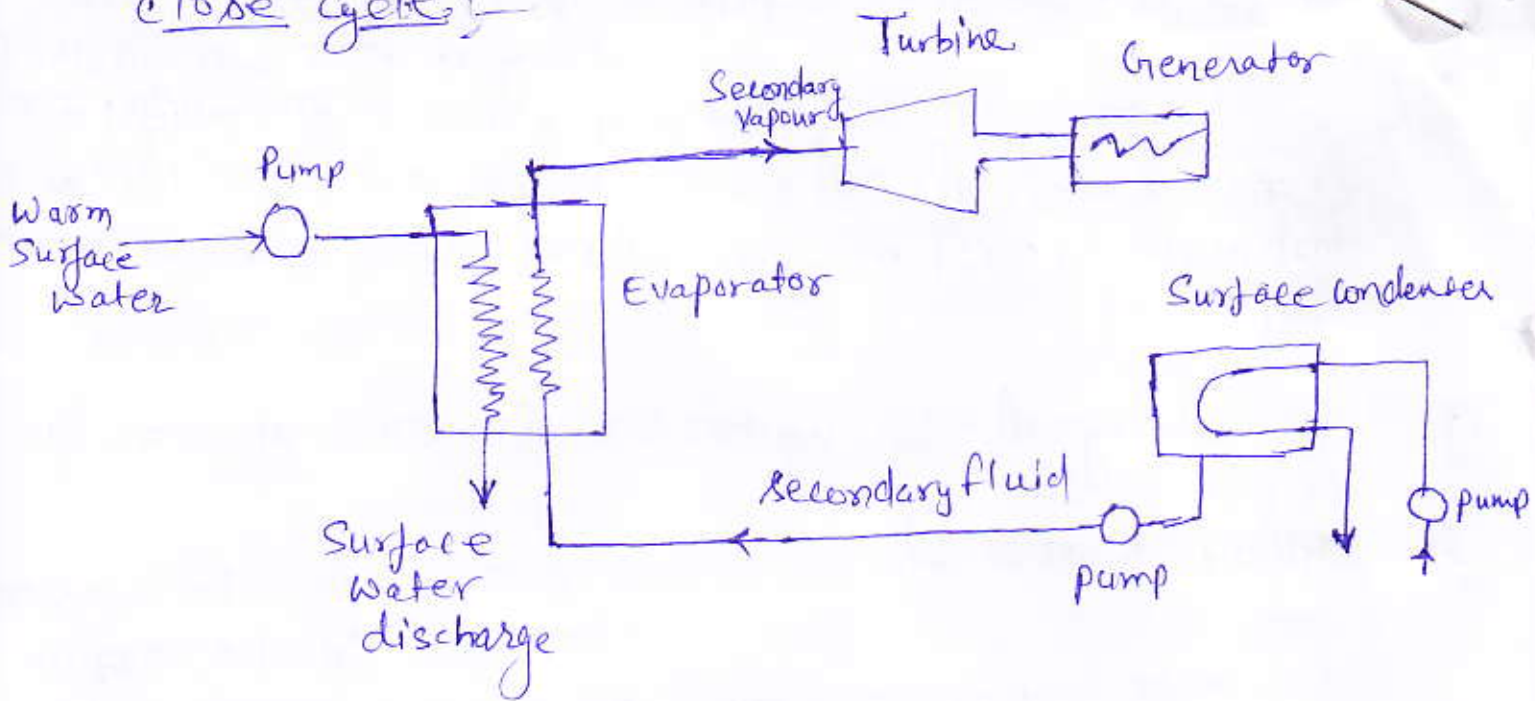 Close Cycle :-
Turbine
Generator
Secondary
Vapour
Pump
Warm
Surface
Water
Evaporator
Surface condenser
Secondary fluid
Pump
Pump
Surface
Water
discharge